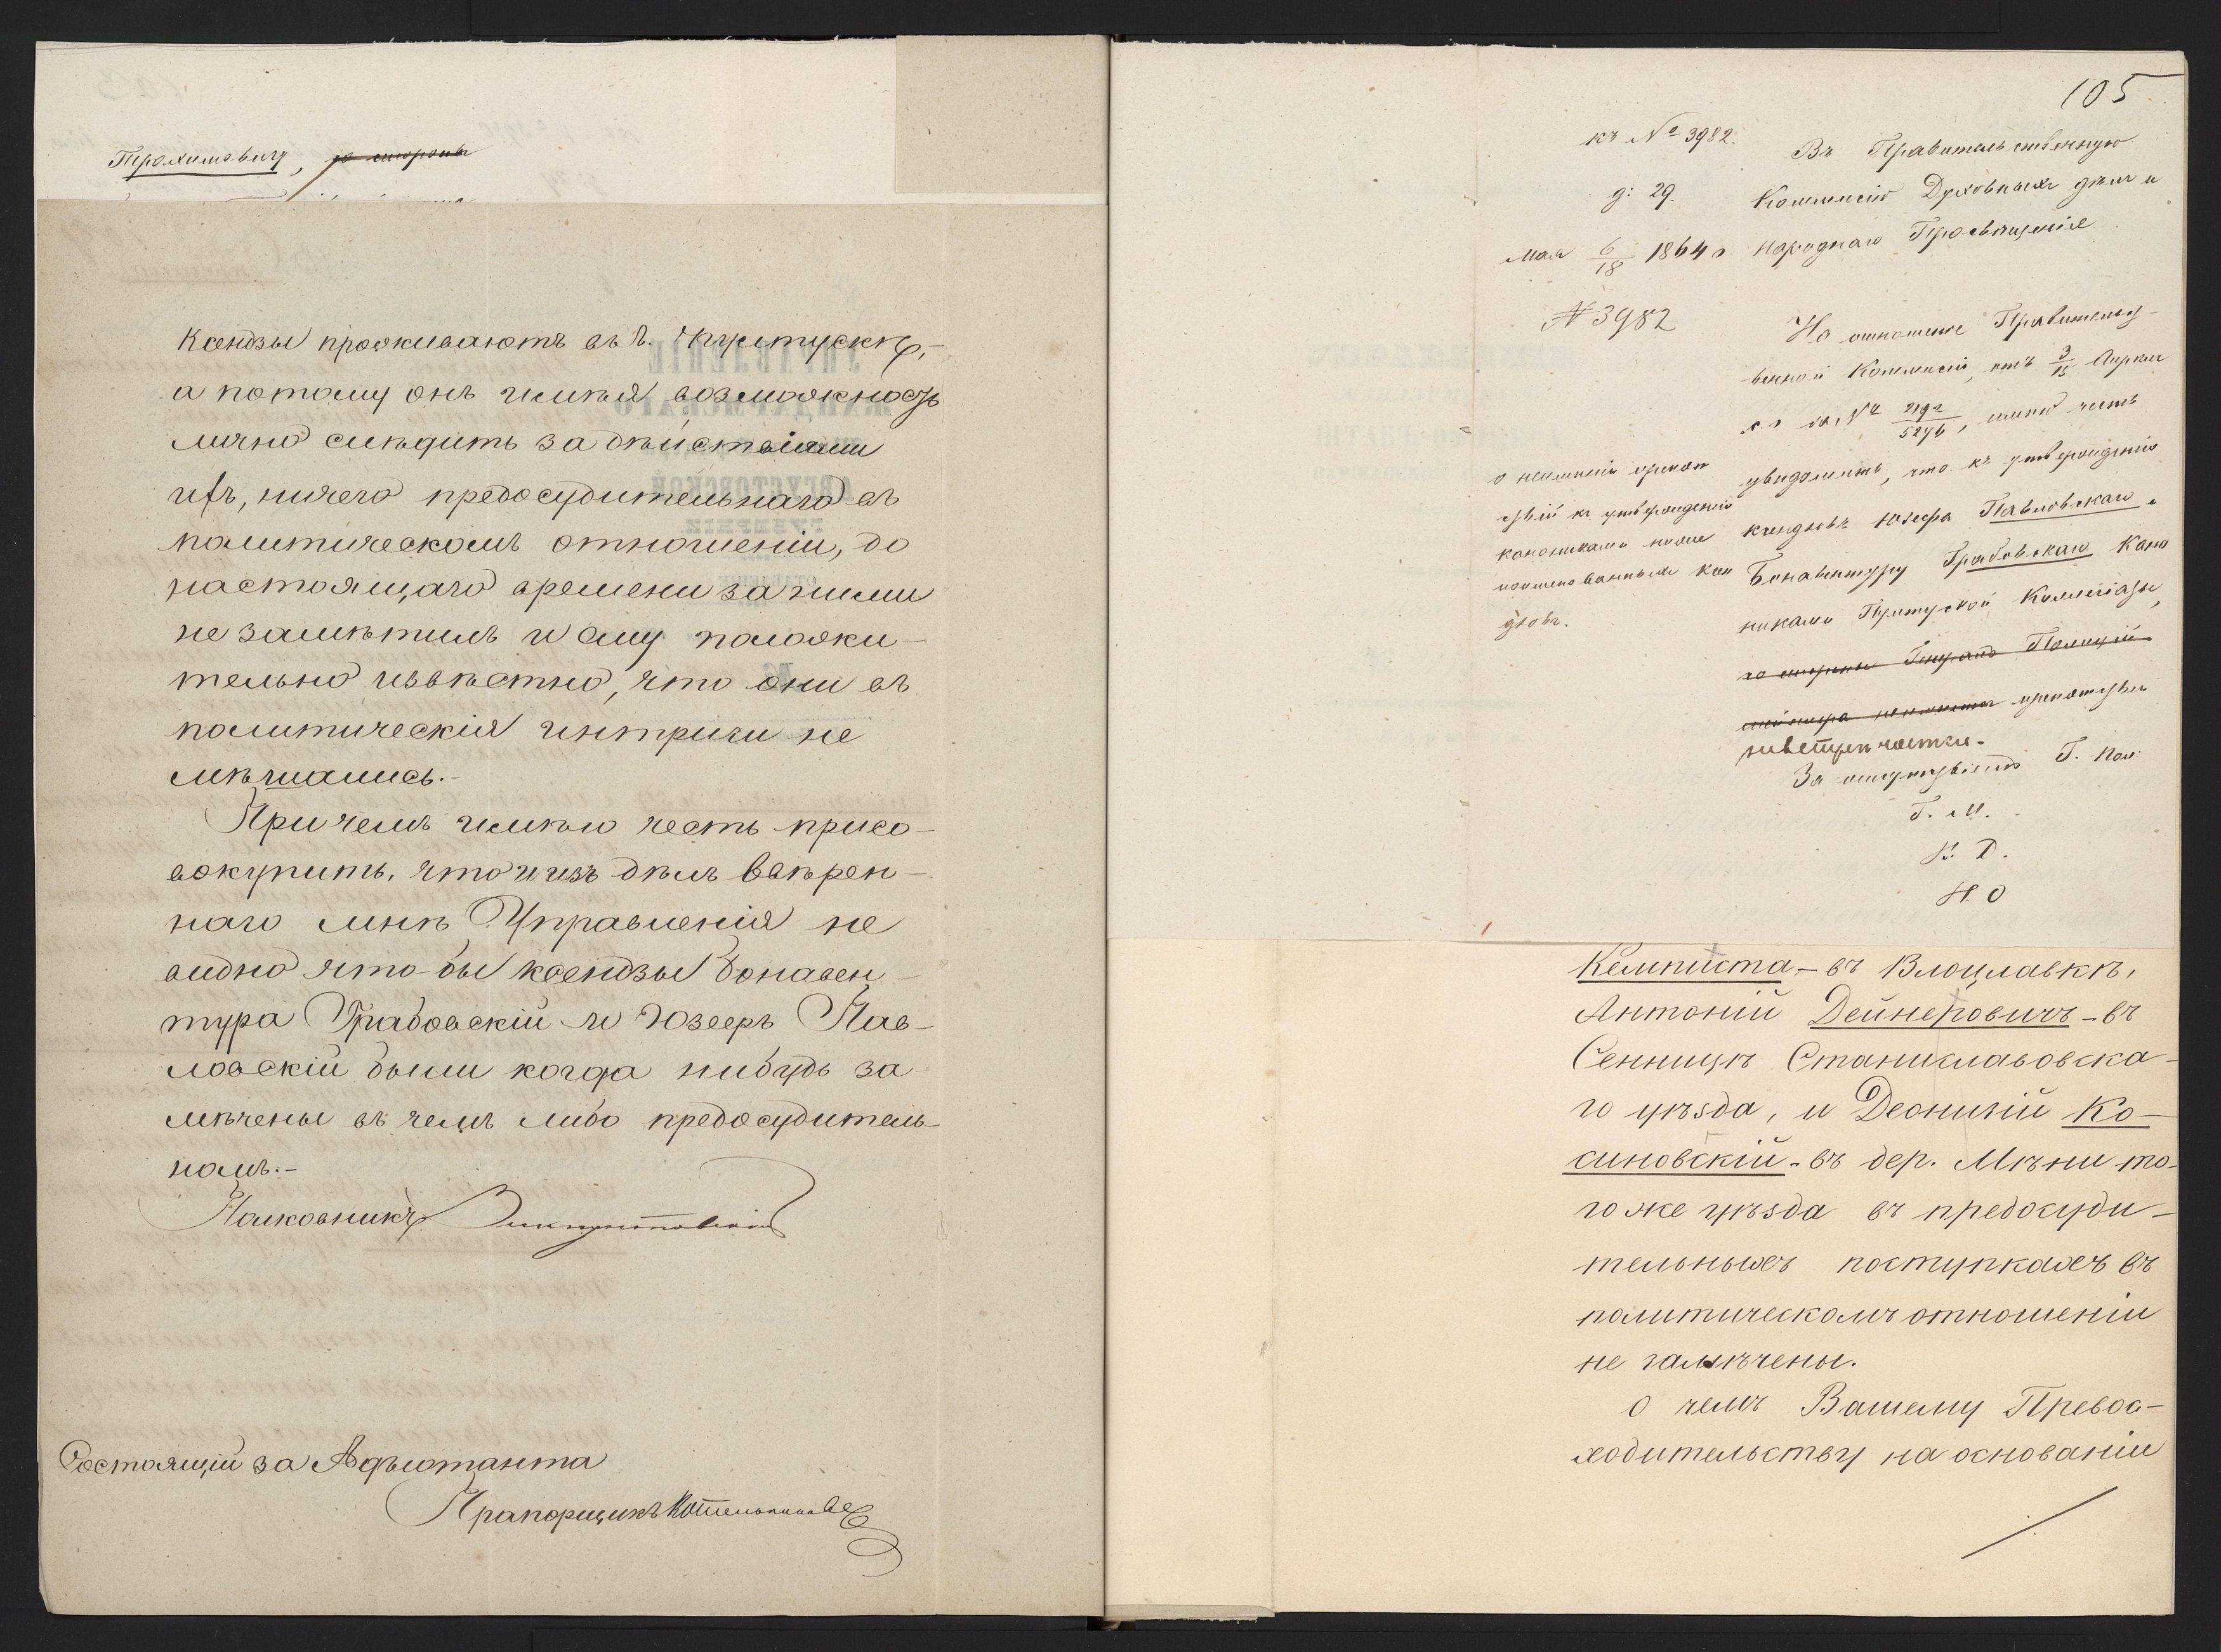 Трохимовичу, со стороны
Ксендзы проживаютъ въ г. Пултускѣ,-
а потому онъ имѣя возможность
лично слѣдить за дѣйствіями
ихъ, ничего предосудительнаго въ
политическомъ отношеніи, до
настоящаго времени за ними
не замѣтилъ и ему положи-
тельно извѣстно, что они въ
политическія интриги не
мѣшались.-
При чемъ имѣю честь присо-
вокупить, что и изъ дѣлъ ввѣрен-
наго мнѣ Управленія не
видно что-бы ксендзы Бонавен-
тура Грабовскій и Юзефъ Пав-
ловскій были когда нибудь за
мѣчены въ чемъ либо предосудитель-
номъ.-
Полковникъ
Состоящій за Адъютанта
Прапорщикъ Котельниковъ
105
къ № 3982.
д: 29.
мая 6/18 1864 г
№ 3982
о неимѣніи препят
ствій къ утвержденію
канониками ниже
поименованныхъ ксен
дзовъ.
Въ Правительственную
Коммисію Духовныхъ дѣлъ и
Народнаго Просвѣщенія
На отношеніе Правительст-
венной Коммисіи, отъ 3/15 Апрѣля
с. г. за № 2192/5296, имѣю честь
увѣдомить, что къ утвержденію
ксендзовъ Юзефа Павловскаго и
Бонавентуру Грабовскаго Кано
никами Пултуской Коллегіаты,
со стороны Генералъ Полицій
мейстера не имѣется препятствій
не встрѣчается.
За отсутствіемъ Г. Пол
Г. М.
К. Д.
Н. О
Кемписта - въ Влоцлавкѣ,
Антоній Дейнеровичъ - въ
Сенницѣ Станиславовска-
го уѣзда, и Деонизій Ко-
синовскій - въ дер. Мѣни то-
го же уѣзда въ предосуди-
тельныхъ поступкахъ въ
политическомъ отношеніи
не замѣчены.
О чемъ Вашему Превос-
ходительству на основаніи